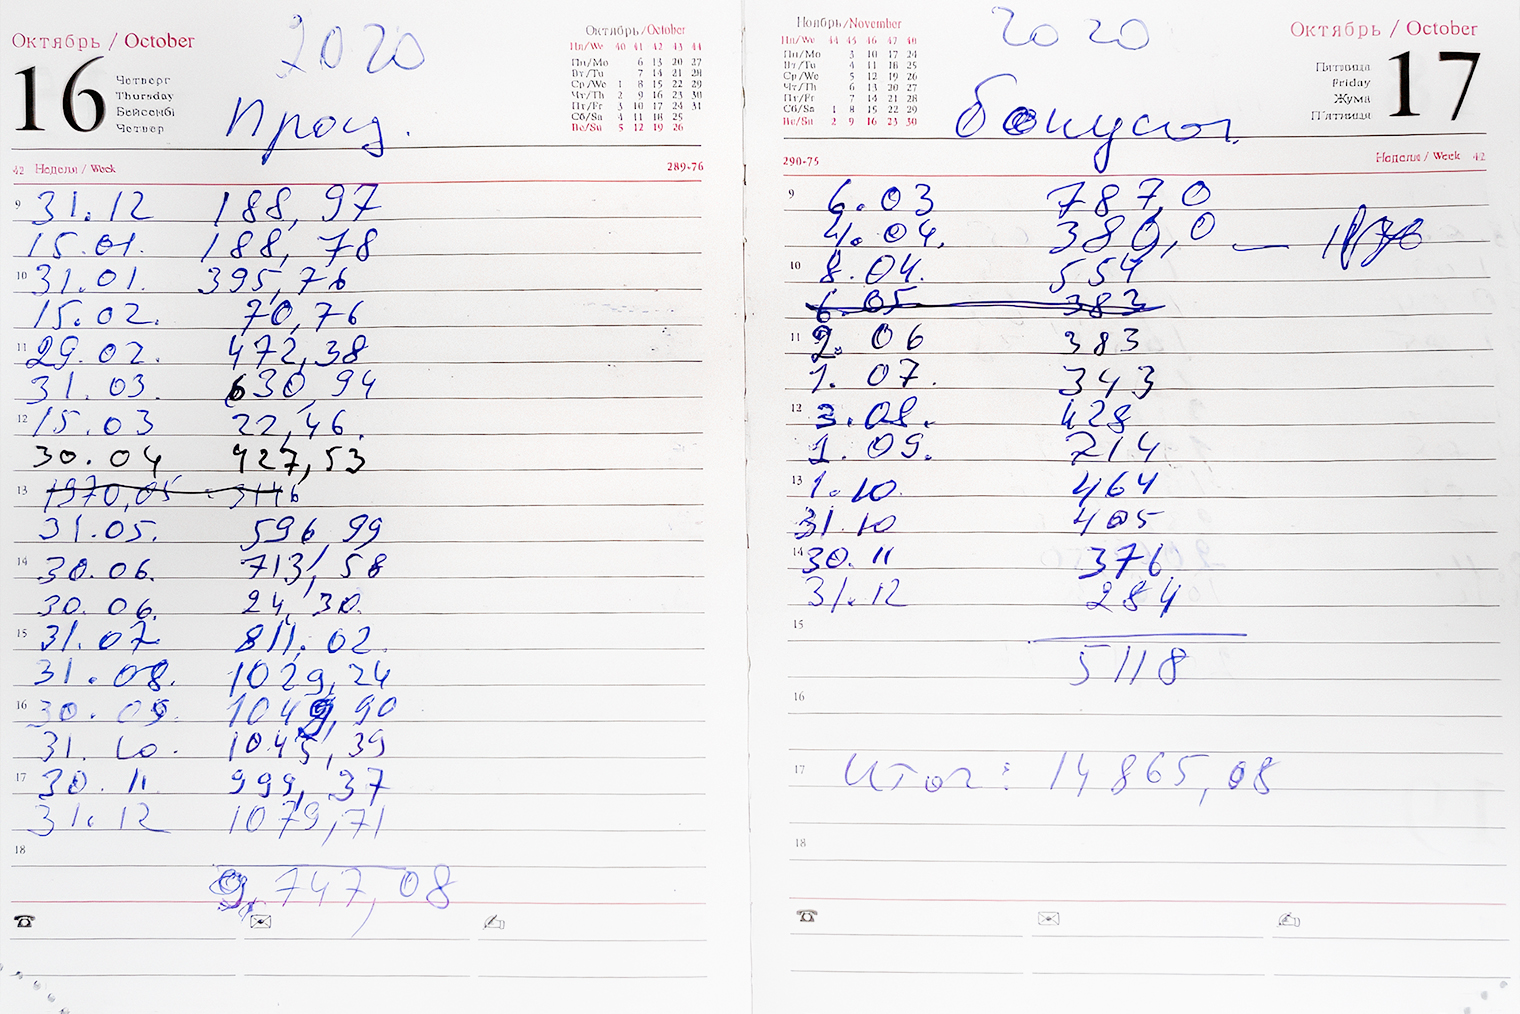 Октябрь / October
16
Четверг
Thursday
Бейсенбі
Четвер
2020
Проц.
Октябрь/October
Пн/We 40 41 42 43 44
Пн/Mo 6 13 20 27
Вт/Tu 7 14 21 28
Ср/We 1 8 15 22 29
Чт/Th 2 9 16 23 30
Пт/Fr 3 10 17 24 31
Сб/Sa 4 11 18 25
Вс/Su 5 12 19 26
42 Неделя / Week 289-76
9 31.12 188,97
15.01. 188,78
10 31.01. 395,76
15.02. 70,76
11 29.02. 472,38
31.03. 630,94
12 15.03 22,46.
30.04 427,53
13
31.05. 596,99
14 30.06. 713,58
30.06. 24,30.
15 31.07 811,02.
31.08. 1029,24
16 30.09. 1049,90
31.10. 1045,39
17 30.11 999,37
31.12 1079,71
18
9.747,08
Ноябрь/November
Пн/We 44 45 46 47 48
Пн/Mo 3 10 17 24
Вт/Tu 4 11 18 25
Ср/We 5 12 19 26
Чт/Th 6 13 20 27
Пт/Fr 7 14 21 28
Сб/Sa 1 8 15 22 29
Вс/Su 2 9 16 23 30
2020
Бонусы.
Октябрь / October
17
Пятница
Friday
Жума
П'ятниця
290-75 Неделя / Week 42
9 6.03 787,0
4.04. 380,0 —
10 8.04. 554
6.05 383
11 2.06 383
1.07. 343
12 3.08. 428
1.09. 714
13 1.10. 464
31.10 405
14 30.11 376
31.12 284
15
5118
16
17 Итог: 14865,08
18